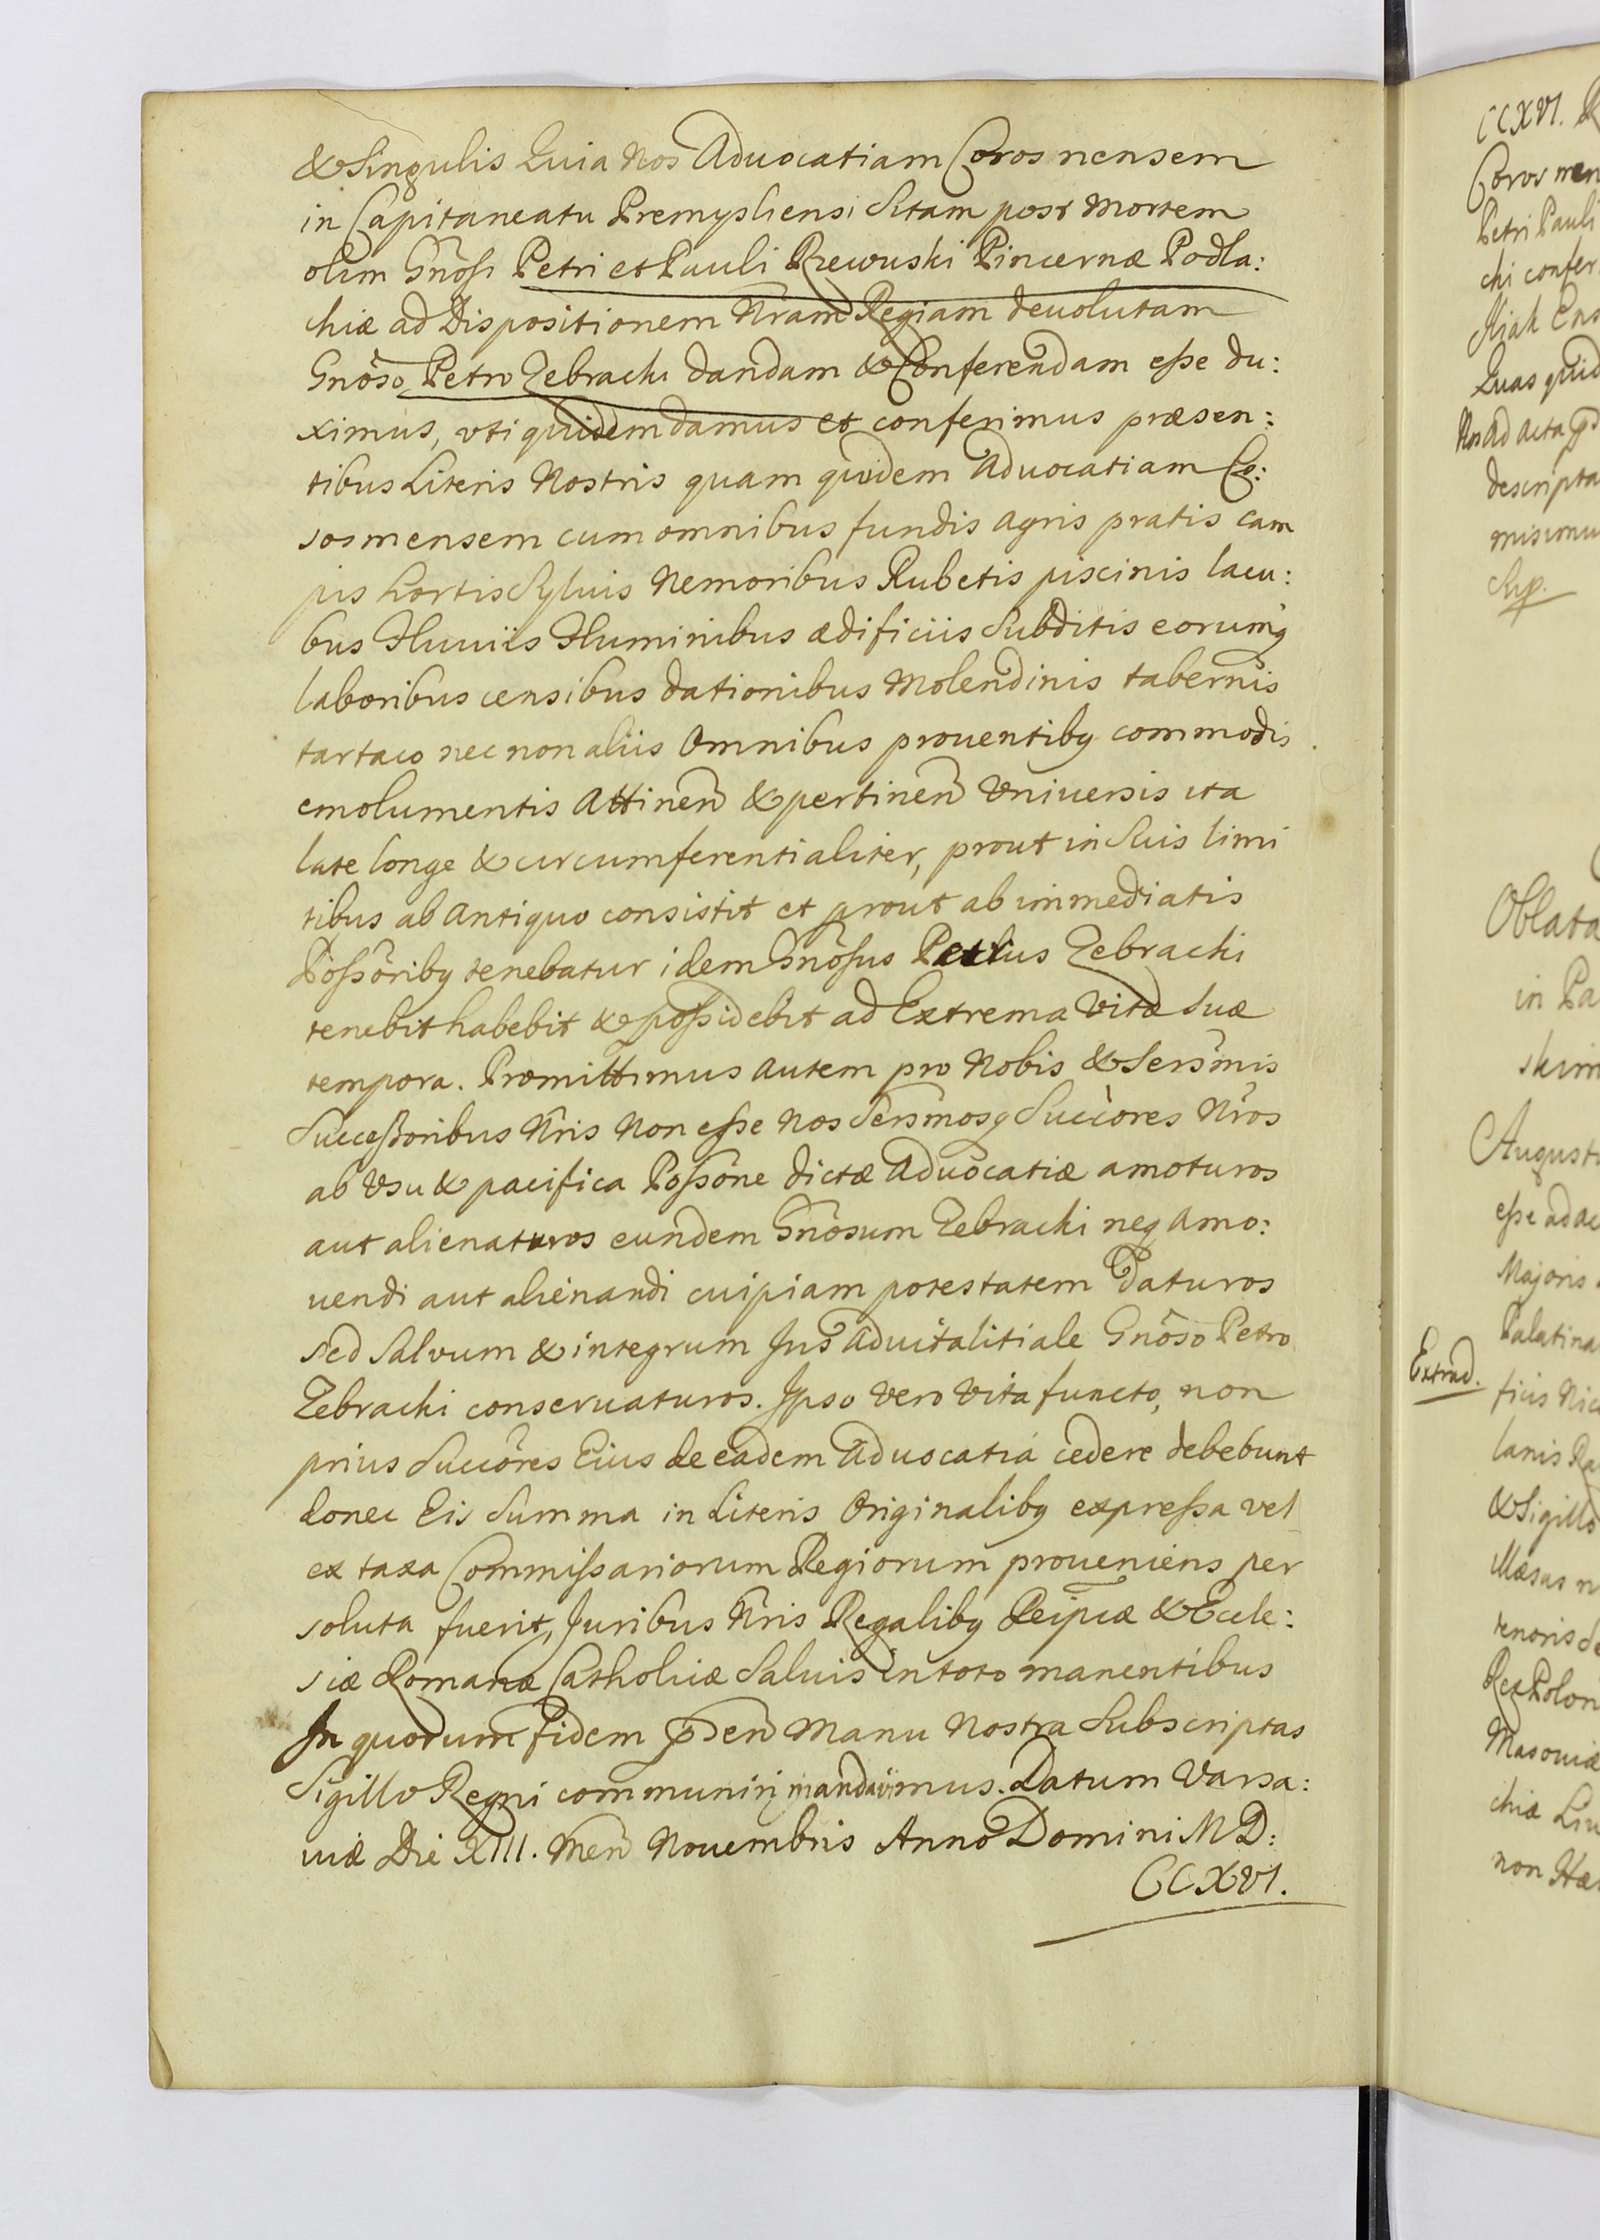 & Singulis Quia Nos Aduocatiam Corosnensem
in Capitaneatu Premysliensi Sitam post Mortem
olim Gnosi Petri et Pauli Rzewuski Pincernæ Podla:
chiæ ad Dispositionem Nram Regiam deuolutam
Gnoso Petro Zebracki dandam & Conferendam esse du:
ximus, vti quidem damus et conferimus præsen:
tibus Literis Nostris quam quidem Aduocatiam Co:
rosnensem cum omnibus fundis agris pratis cam
pis hortis Syluis Nemoribus Rubetis piscinis lacu:
bus Fluuiis Fluminibus ædificiis Subditis eorumq
laboribus censibus dationibus Molendinis tabernis
tartaco nec non aliis Omnibus prouentibq commodis
emolumentis Attinen & pertinen Vniuersis ita
late longe & circumferentialiter, prout in Suis limi
tibus ab antiquo consistit et prout ab immediatis
Possoribq tenebatur idem Gnosus Petrus Zebracki
tenebit habebit & possidebit ad Extrema Vitæ Suæ
tempora. Promittimus autem pro Nobis & Sersmis
Successoribus Nris Non esse Nos Sersmosq Succores Nros
ab Vsu & pacifica Possone dictæ Aduocatiæ amoturos
aut alienaturos eundem Gnosum Zebracki neq amo:
uendi aut alienandi cuipiam potestatem Daturos
sed Salvum & integrum Jus aduitalitiale Gnoso Petro
Zebracki conseruaturos. Ipso Vero Vita functo, non
prius Succores Eius de eadem Aduocatia cedere debebunt
donec Eis Summa in Literis Originalibq expressa vel
ex taxa Commissariorum Regiorum proueniens per
soluta fuerit, Juribus Nris Regalibq Reipcæ & Eccle:
siæ Romanæ Catholicæ Saluis in toto manentibus
In quorum Fidem psen Manu Nostra Subscriptas
Sigillo Regni communiri mandauimus. Datum Varsa:
uiæ Die XIII. Men Nouembris Anno Domini MD:
CCXVI.
CCXVI.
Petri Pauli
chi confer
Quas quid
Nos ad acta
descripta
misimus
Oblata
in Pa
August
esse ad ac
Majoris
Palatina
Extrad.
ficis Nic
lanis Ra
& Sigillo
tenoris Se
Rex Polon
Masouiæ
chiæ Liu